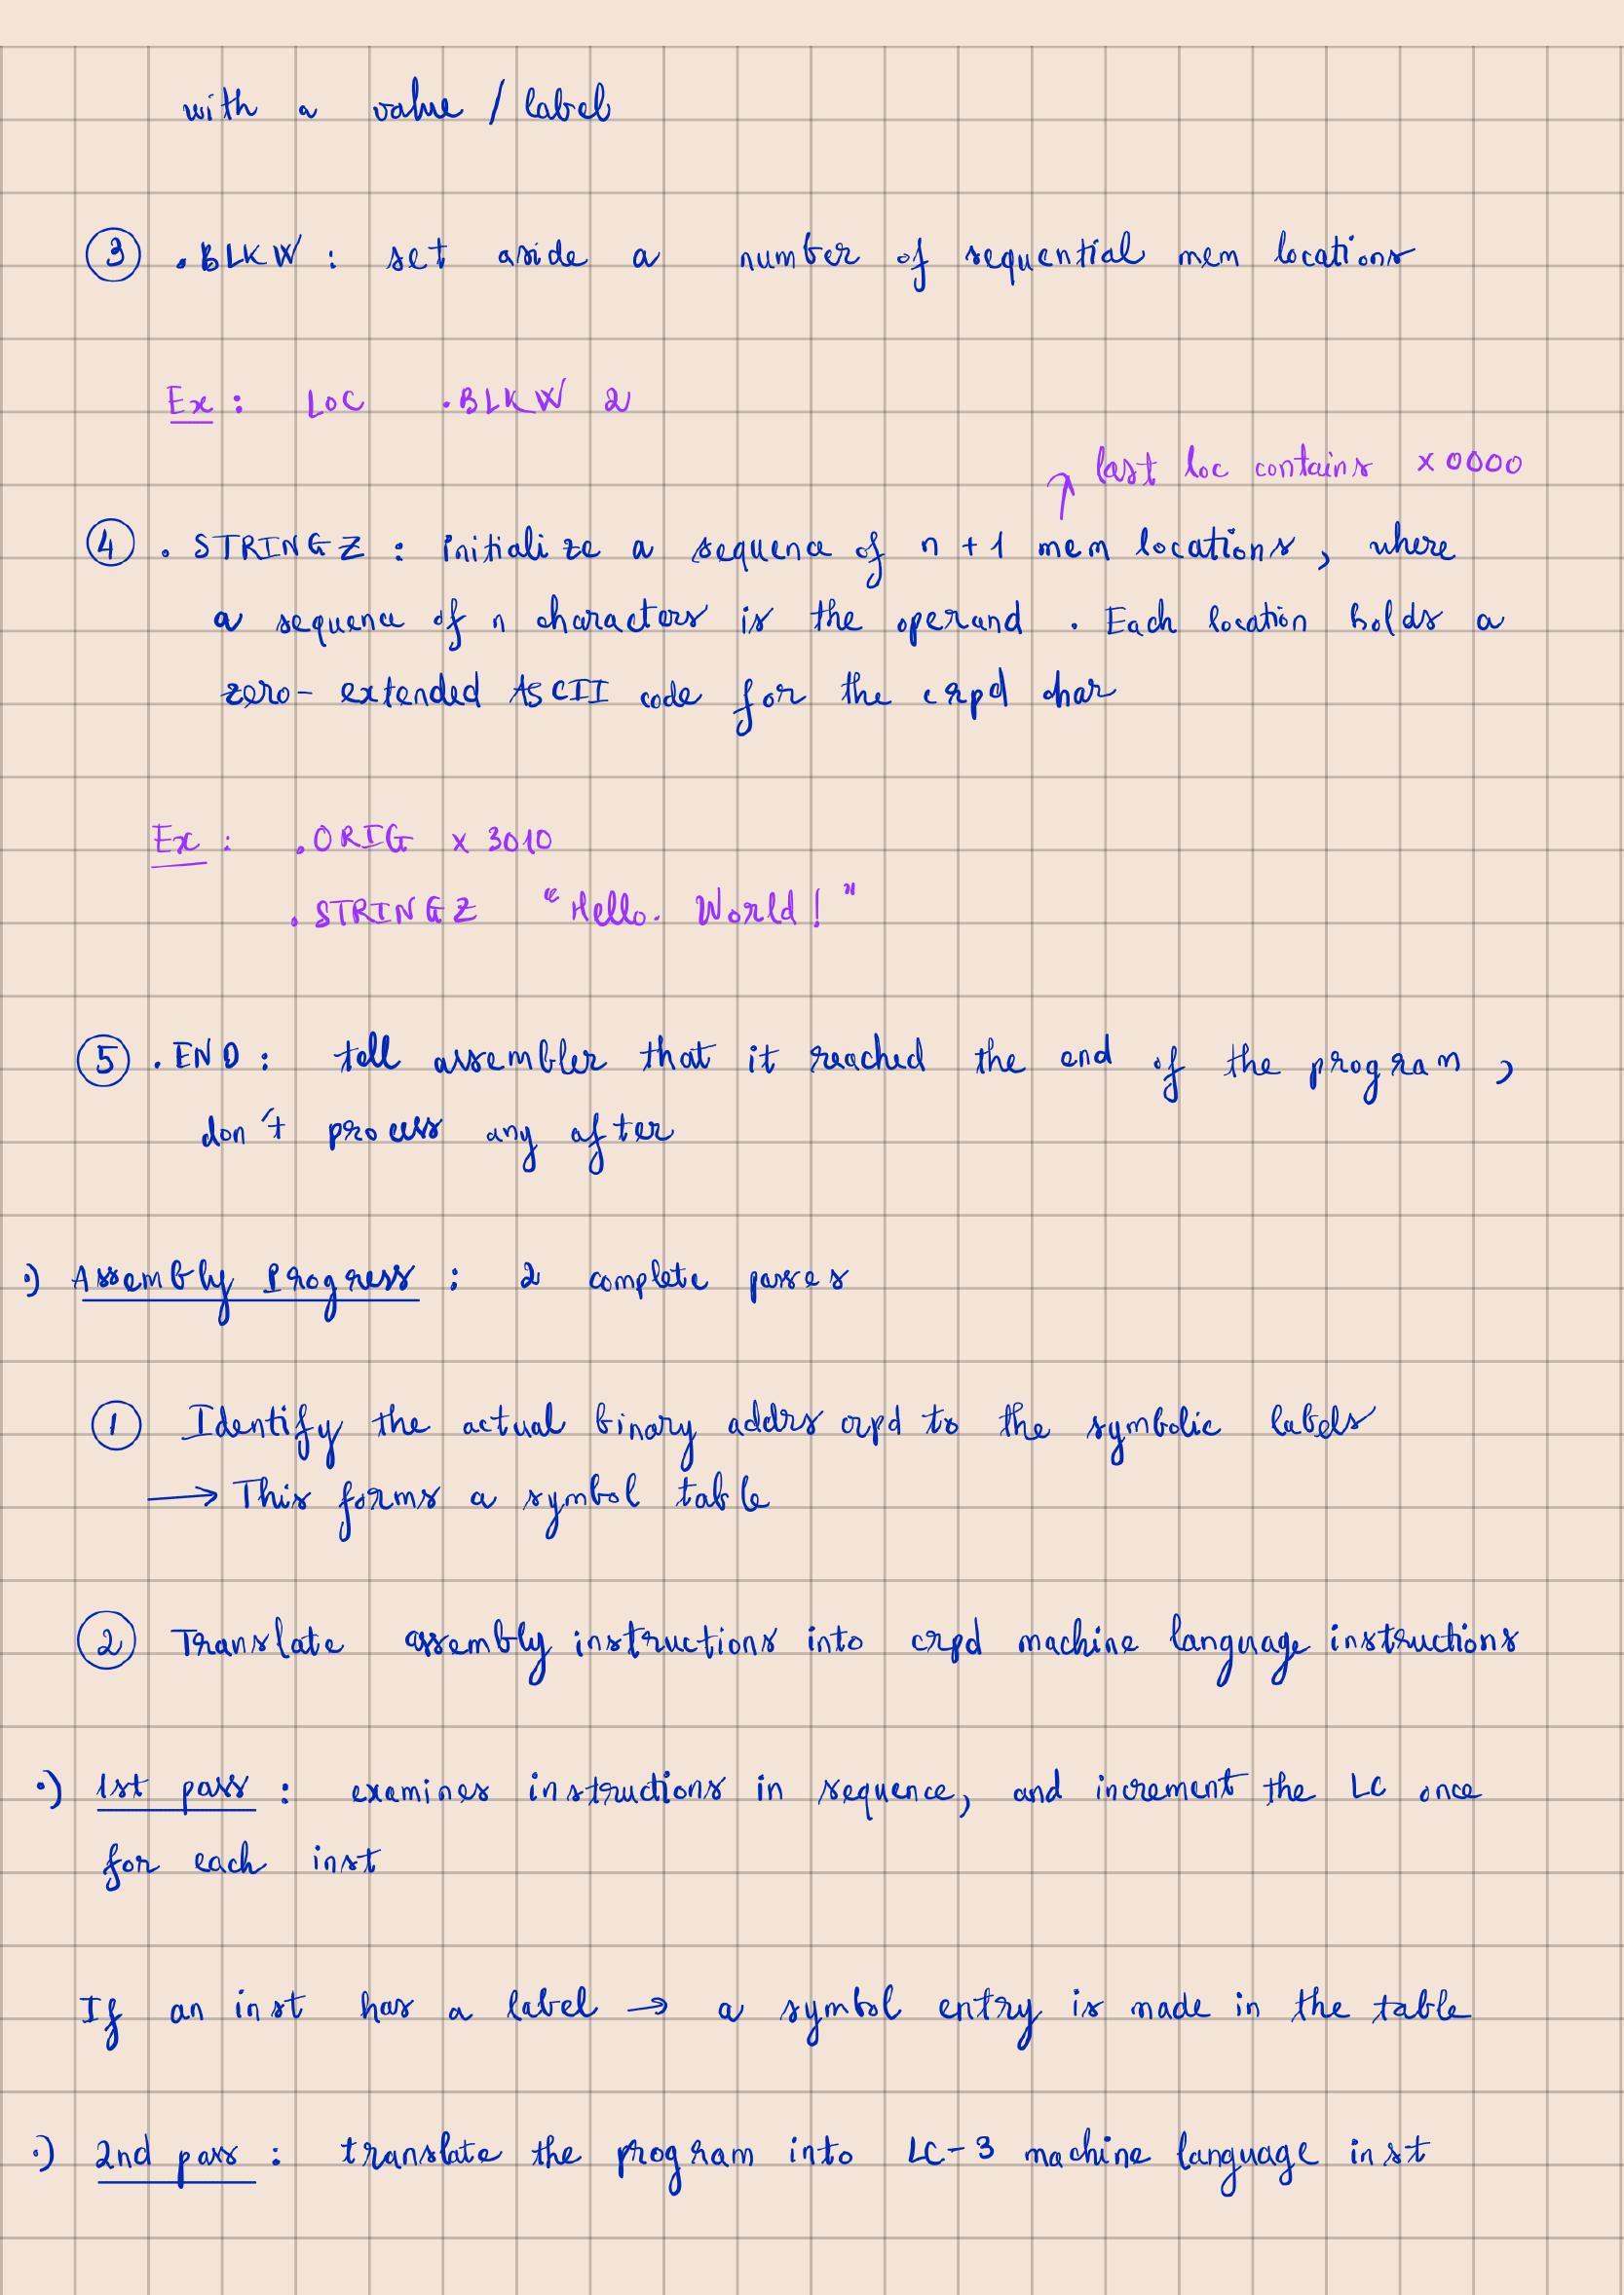 with a value / label
③ .BLKW : set aside a number of sequential mem locations
Ex : LOC .BLKW 2
last loc contains x0000
④ .STRINGZ : initialize a sequence of n+1 mem locations, where
a sequence of n characters is the operand. Each location holds a
zero-extended ASCII code for the crpd char
Ex : .ORIG x3010
.STRINGZ "Hello. World!"
⑤ .END : tell assembler that it reached the end of the program,
don't process any after
·) Assembly Progress : 2 complete passes
① Identify the actual binary addrs crpd to the symbolic labels
→ This forms a symbol table
② Translate assembly instructions into crpd machine language instructions
·) 1st pass : examines instructions in sequence, and increment the LC once
for each inst
If an inst has a label → a symbol entry is made in the table
·) 2nd pass : translate the program into LC-3 machine language inst